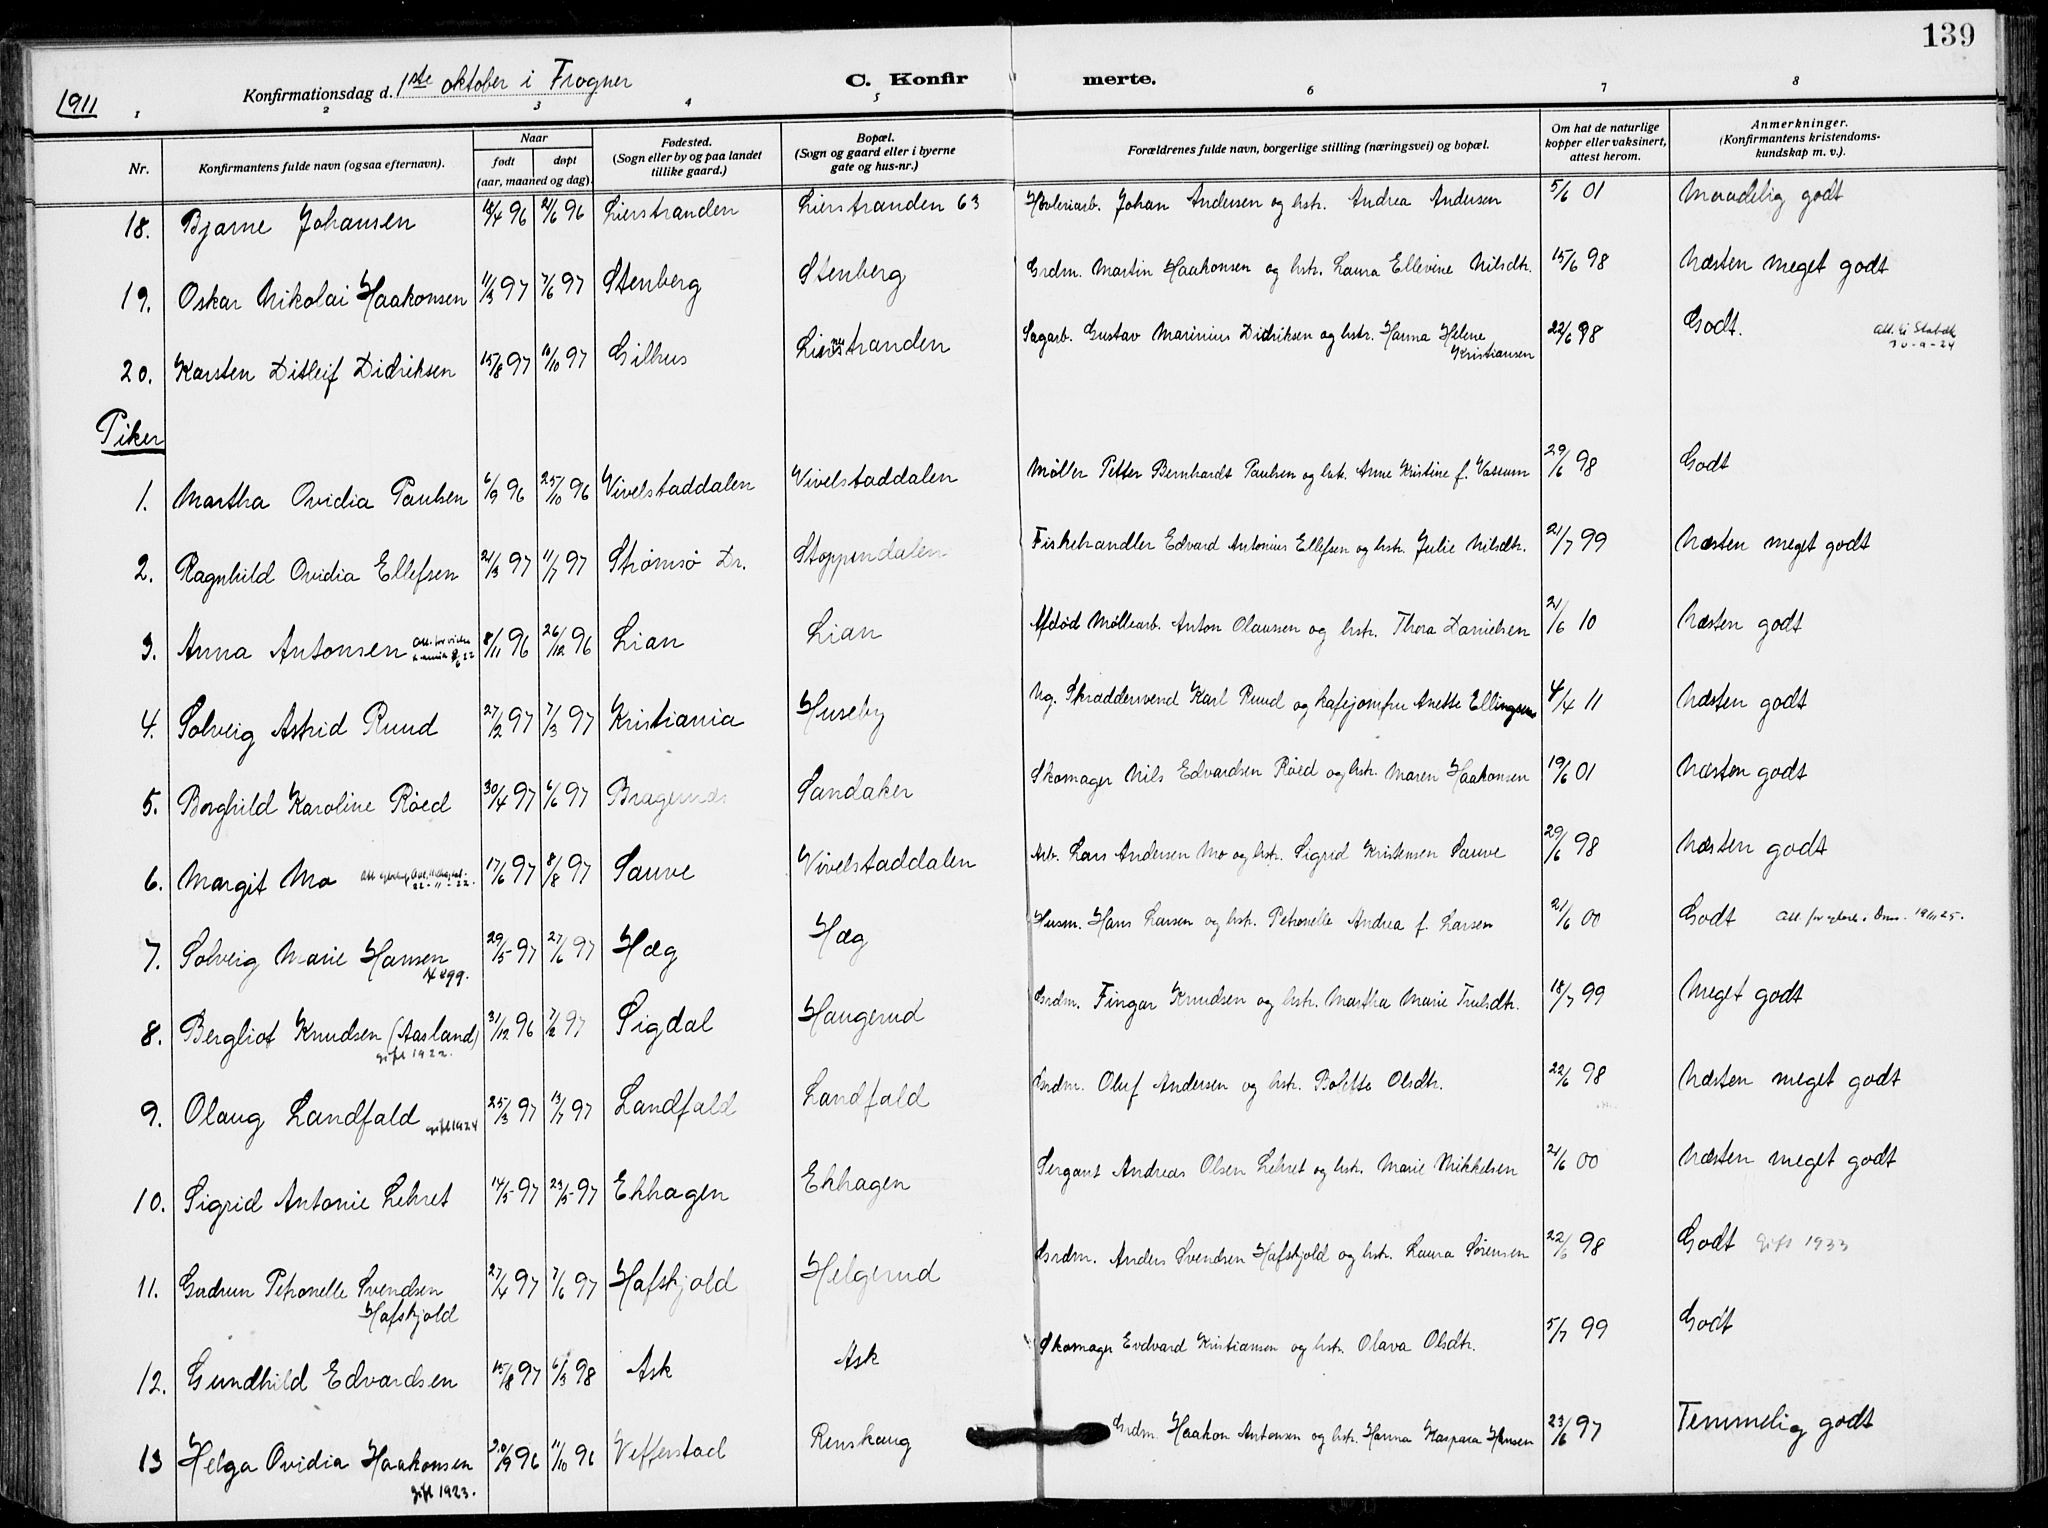 139
1911
Konfirmationsdag d. 1ste oktober i Frogner
C. Konfirmerte.
1 2 3 4 5 6 7 8
Nr.
Konfirmantens fulde navn (ogsaa efternavn).
Naar
født
døpt
(aar, maaned og dag).
Fødested.
(Sogn eller by og paa landet
tillike gaard.)
Bopæl.
(Sogn og gaard eller i byerne
gate og hus-nr.)
Forældrenes fulde navn, borgerlige stilling (næringsvei) og bopæl.
Om hat de naturlige
kopper eller vaksinert,
attest herom.
Anmerkninger.
(Konfirmantens kristendoms-
kundskap m. v.).
18. Bjarne Johansen 18/4 96 21/6 96 Lierstranden Lierstranden 63 Johan Andersen og hstr. Andrea Andersen 5/6 01 Maadelig godt
19. Oskar Nikolai Haakonsen 11/3 97 7/6 97 Stenberg Stenberg Grdm. Martin Haakonsen og hstr. Laura Ellevine Nilsdtr. 15/6 98 Næsten meget godt
20. Karsten Ditleif Didriksen 15/8 97 10/10 97 Gilhus Lierstranden Sagarb. Gustav Marinius Didriksen og hstr. Hanna Helene Kristiansen 22/6 98 Godt.
Piker
1. Martha Ovidia Paulsen 6/9 96 25/10 96 Vivelstaddalen Vivelstaddalen Møller Petter Bernhardt Paulsen og hstr. Anne Kristine f. 29/6 98 Godt
2. Ragnhild Ovidia Ellefsen 21/3 97 11/7 97 Strømsø Dr. Stoppendalen Fiskehandler Edvard Antonius Ellefsen og hstr. Julie Nilsdtr. 21/7 99 Næsten meget godt
3. Anna Antonsen 8/11 96 26/12 96 Lian Lian Afdød Møllearb. Anton Olaussen og hstr. Thora Danielsen 21/6 10 Næsten godt
4. Solveig Astrid Ruud 27/2 97 7/3 97 Kristiania Huseby Ug. Skræddersvend Karl Ruud og kafejomfru Anette Ellingsen 4/4 11 Næsten godt
5. Borghild Karoline Røed 30/4 97 6/6 97 Bragernes Sandaker Skomager Nils Edvardsen Røed og hstr. Maren Haakonsen 19/6 01 Næsten godt
6. Margit Mo 22-11-22. 17/6 97 8/8 97 Sauve Vivelstaddalen Arb. Lars Andersen Mo og hstr. Sigrid Kristensen Sauve 29/6 98 Næsten godt
7. Solveig Marie Hansen 29/5 97 27/6 97 Hæg Hæg Husm. Hans Larsen og hstr. Petronelle Andrea f. Larsen 21/6 00 Godt
8. Bergliot Knudsen (Aasland) gift 1922. 31/12 96 7/2 97 Sigdal Haugerud Grdm. Fingar Knudsen og hstr. Martha Marie Trulsdtr. 18/7 99 Meget godt
9. Olaug Landfald gift 1924 25/3 97 13/7 97 Landfald Landfald Grdm. Oluf Andersen og hstr. Bolette Olsdtr. 22/6 98 Næsten meget godt
10. Sigrid Antonie Lehret 14/5 97 23/5 97 Ekhagen Ekhagen Sergant Andreas Olsen Lehret og hstr. Marie Mikkelsen 21/6 00 Næsten meget godt
11. Gudrun Petronelle Svendsen Hafskjold 27/4 97 7/6 97 Hafskjold Helgerud Grdm. Anders Svendsen Hafskjold og hstr. Laura Sørensen 22/6 98 Godt Gift 1933
12. Gundhild Edvardsen 15/8 97 6/3 98 Ask Ask Skomager Evdvard Kristiansen og hstr. Olava Olsdtr. 5/7 99 Godt
13 Helga Ovidia Haakonsen gift 1923. 20/9 96 11/10 96 Vefferstad Renskaug Grdm. Haakon Antonsen og hstr. Hanna Kaspara Hansen 23/6 97 Temmelig godt